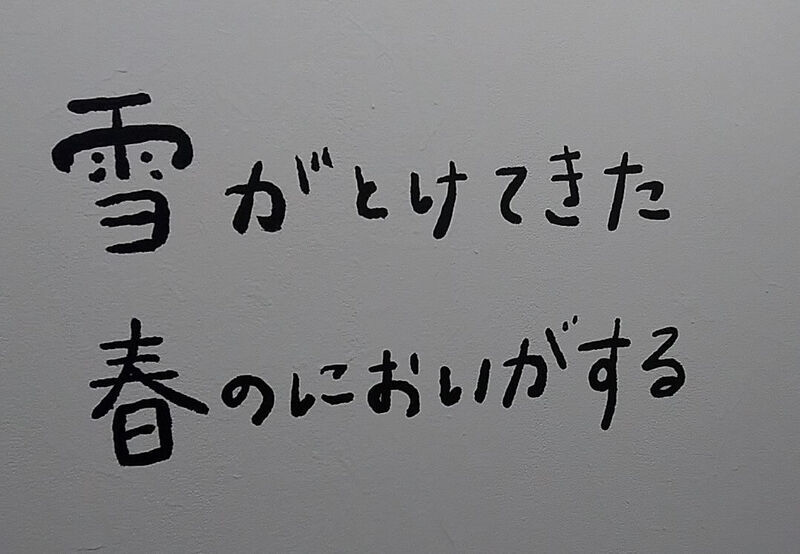 雪がとけてきた
春のにおいがする